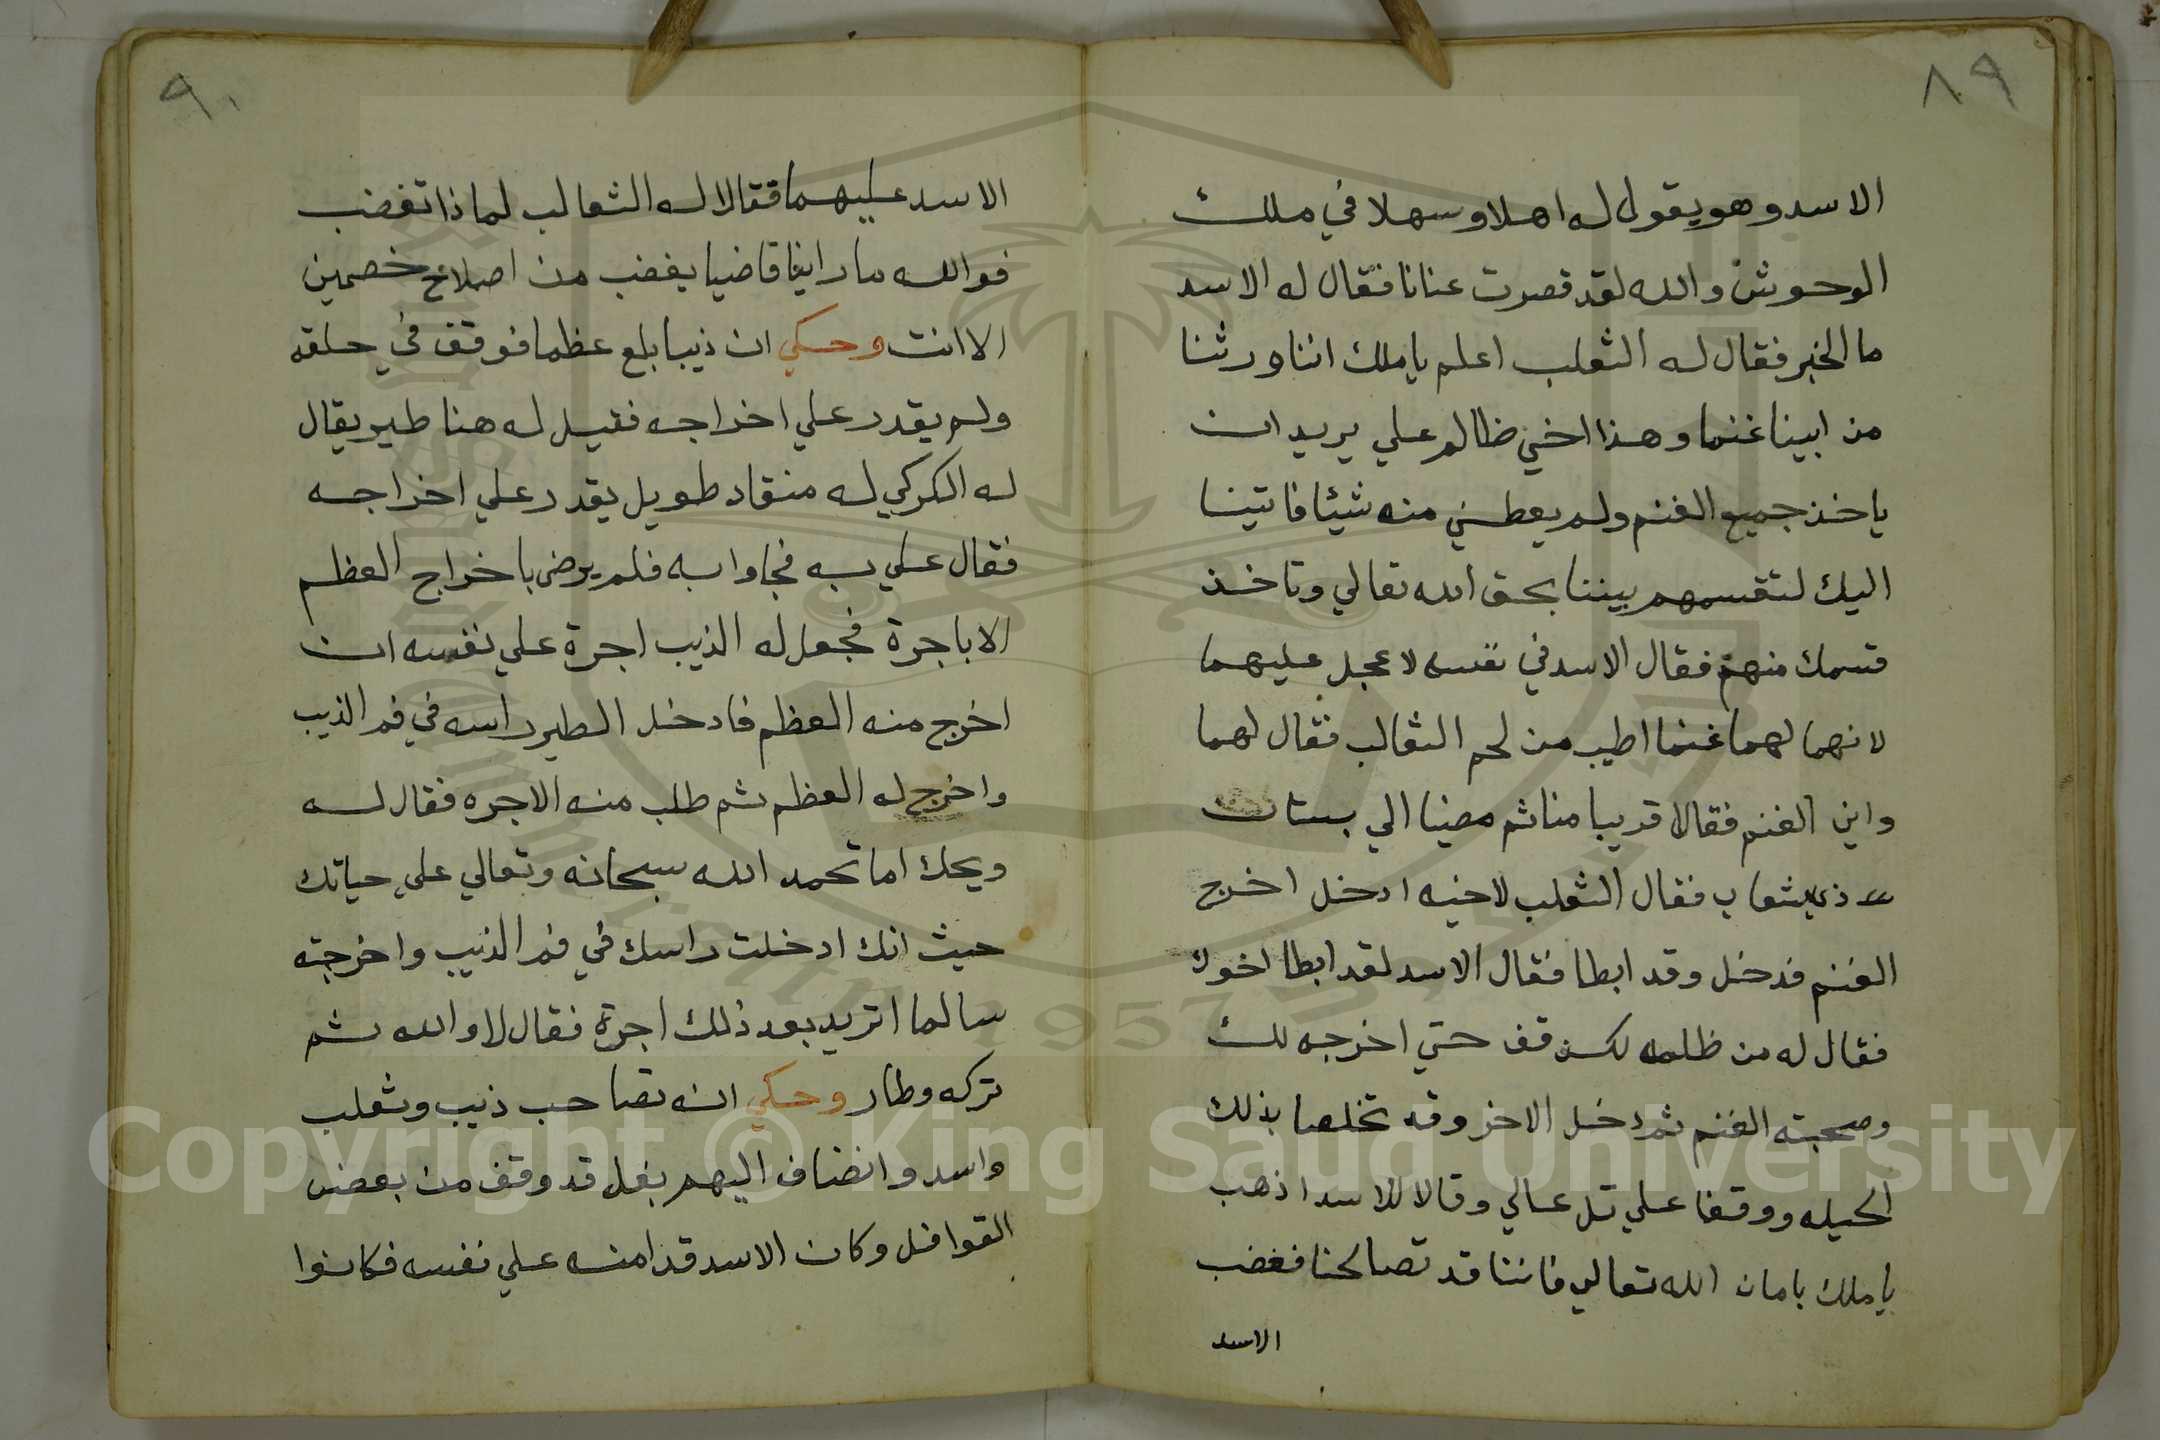 ٨٩
الاسد وهو يقول له اهلا وسهلا في ملك
الوحوش والله لقد قصرت عنانا فقال له الاسد
ما الخبر فقال له الثعلب اعلم يا ملك اننا ورثنا
من ابينا غنما وهذا اخي ظالم علي يريد ان
ياخذ جميع الغنم ولم يعطني منه شيئا فاتينا
اليك لتقسمهم بيننا بحق الله تعالي وتاخذ
قسمك منهم فقال الاسد في نفسه لا عجل عليهما
لانهما لهما غنما اطيب من لحم الثعالب فقال لهما
واين الغنم فقالا قريبا منا ثم مضيا الي بستان
فقال الثعلب لاخيه ادخل اخرج
الغنم فدخل وقد ابطا فقال الاسد لقد ابطا اخوك
فقال له من ظلمه لكن قف حتي اخرجه لك
وصحبته الغنم ثم دخل الاخر وقد تخلصا بذلك
الحيله ووقفا علي تل عالي وقالا للاسد اذهب
يا ملك بامان الله تعالي فاننا قد تصالحنا فغضب
الاسد
٩٠
الاسد عليهما فقالا له الثعالب لماذا تغضب
فوالله ما راينا قاضيا يغضب من اصلاح خصمين
الا انت وحكي ان ذيبا بلع عظما فوقف في حلقه
ولم يقدر علي اخراجه فقيل له هنا طير يقال
له الكركي له منقاد طويل يقدر علي اخراجه
فقال علي به فجاوا به فلم يرضي باخراج العظم
الا باجرة فجعل له الذيب اجرة علي نفسه ان
اخرج منه العظم فادخل الطير راسه في فم الذيب
واخرج له العظم ثم طلب منه الاجره فقال له
ويحك اما تحمد الله سبحانه وتعالي علي حياتك
حيث انك ادخلت راسك في فم الذيب واخرجته
سالما اتريد بعد ذلك اجرة فقال لا والله ثم
تركه وطار وحكي انه تصاحب ذيب وثعلب
واسد وانضاف اليهم بغل قد وقف من بعض
القوافل وكان الاسد قد امنه علي نفسه فكانوا
Copyright © King Saud University
1957